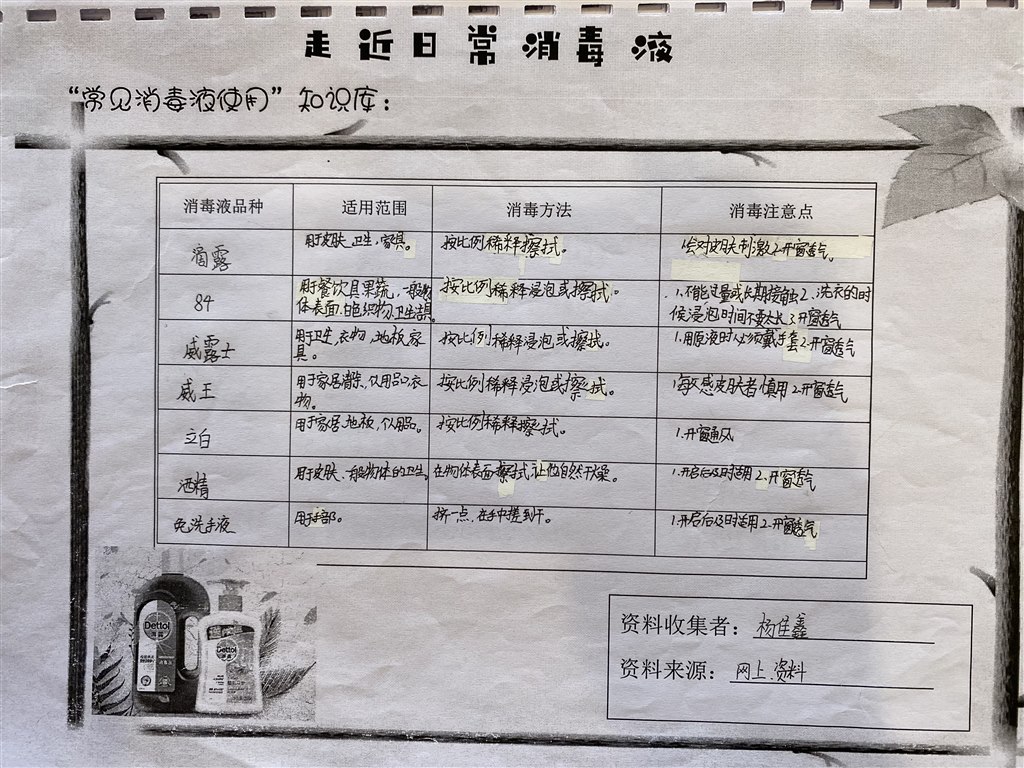 走近日常消毒液
“常见消毒液使用”知识库：
消毒液品种 适用范围 消毒方法 消毒注意点
滴露 用于皮肤、卫生，家具。 按比例稀释擦拭。 1.会对皮肤刺激2.开窗透气。
84 用于餐饮具果蔬，一般物
体表面、白色织物、卫生洁具。 按比例稀释浸泡或擦拭。 1.不能过量或长期接触2、洗衣的时
候浸泡时间不要太长3.开窗透气
威露士 用于卫生、衣物，地板，家
具。 按比例稀释浸泡或擦拭。 1.用原液时必须戴手套2.开窗透气
威王 用于家居清除，仪用品衣
物。 按比例稀释浸泡或擦拭。 1.每攵感皮肤者慎用2.开窗透气
立白 用于家居地板，仪用品。 按比例稀释擦拭。 1.开窗通风
酒精 用于皮肤、一般物体的卫生。 在物体表面擦拭让他自然干燥。 1.开启后及时适用2、开窗透气
免洗手液 用于手部。 挤一点，在手中搓到干。 1.开启后及时适用2.开窗透气
Dettol
滴露
Dettol
滴露
资料收集者：杨佳鑫
资料来源：网上资料